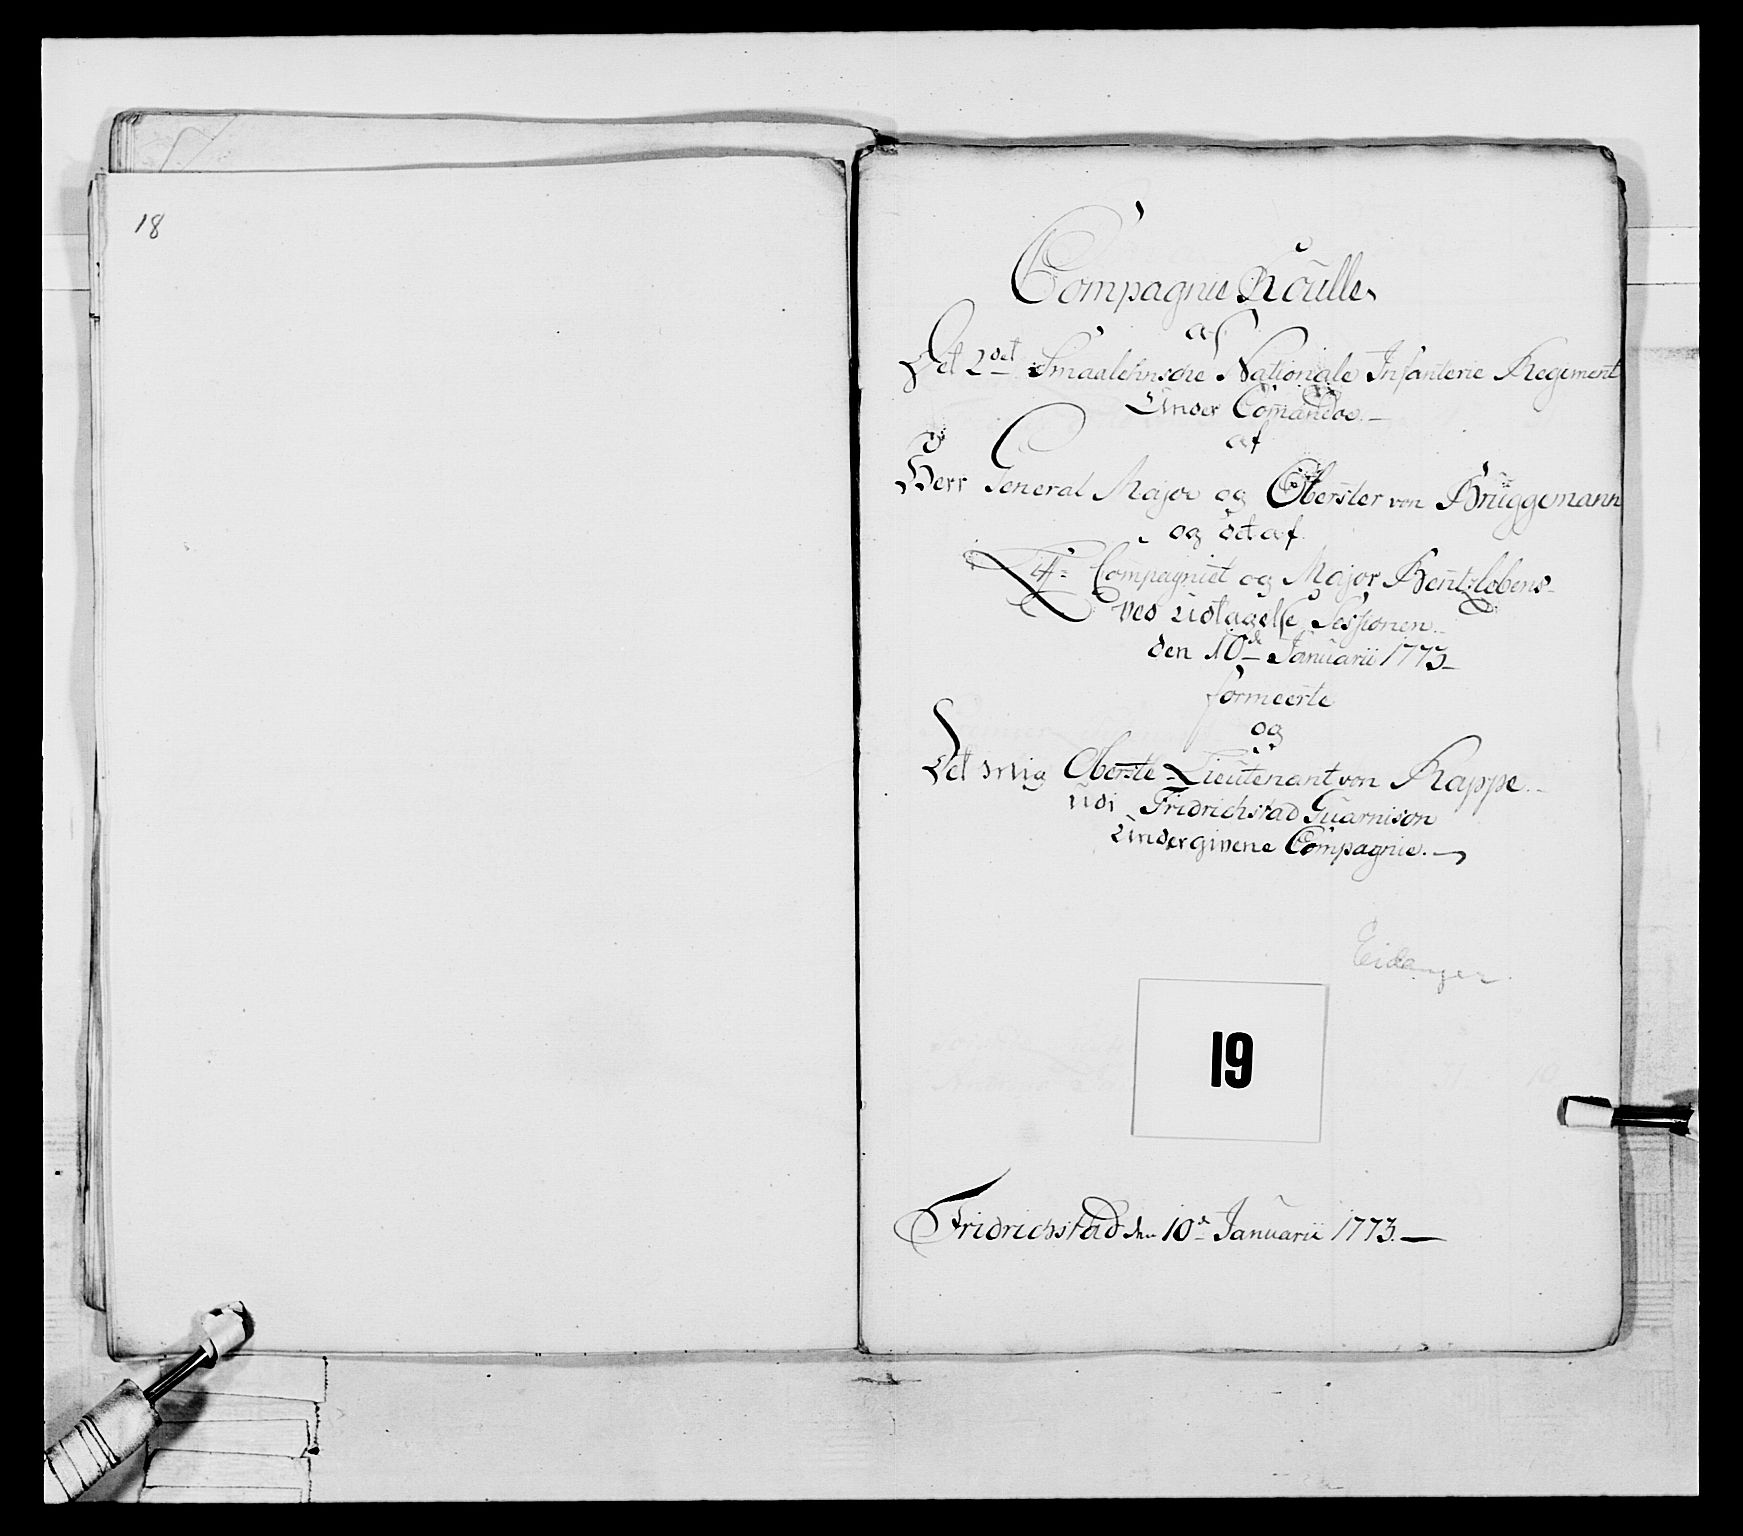 18
Compagnie Roulle
af
Det 2det Smaalehnsche Nationale Infanterie Regiment
Under Comandoe.
af
Herr General Major og Oberster von Brüggemann
og det af
Compagniet og Major Hentzlebens
ved Udtagelse Sessionen
den 10de Januarii 1773
formeerte
og
Det mig Oberste-Lieutenant von Kappe.
udi Fridrichstad Guarnison
Undergivene Compagnie.
Eidanger
19
Fridrichstad den 10de Januarii 1773.